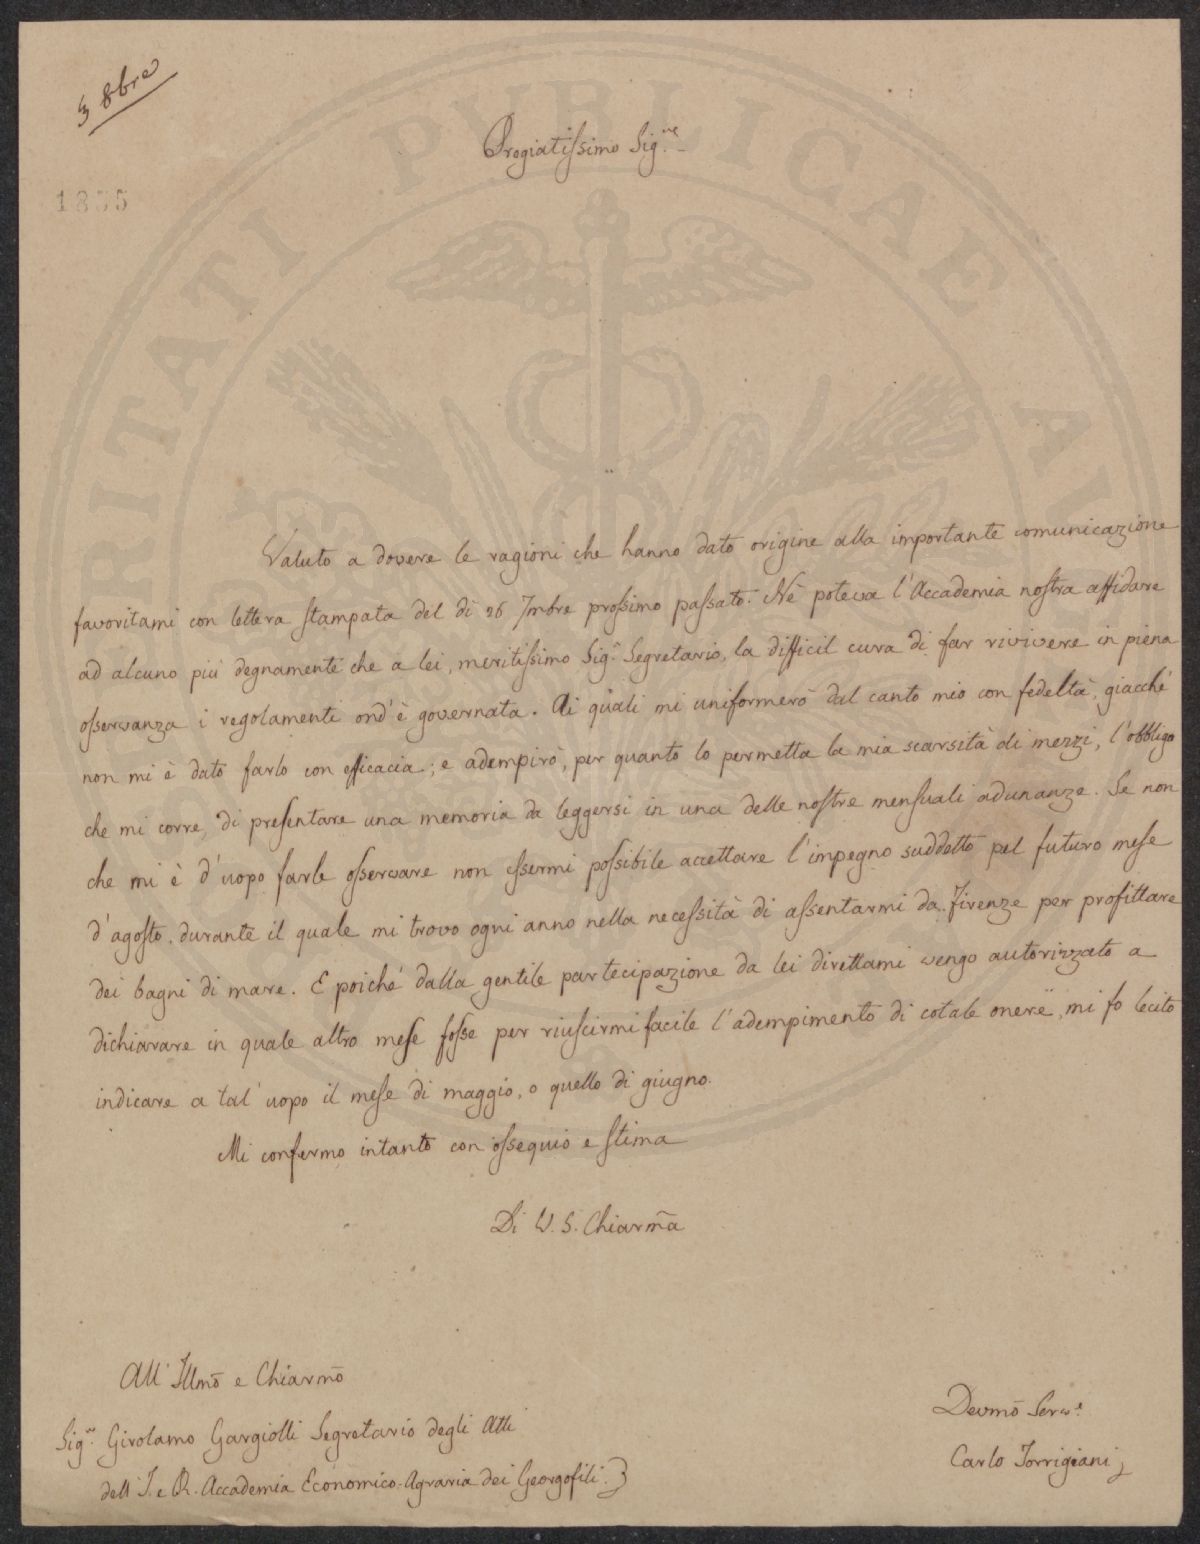 3 8bre
1835
Pregiatissimo Sig.re
Valuto a dovere le ragioni che hanno dato origine alla importante comunicazione
favoritami con lettera stampata del dì 26 7mbre prossimo passato. Nè poteva l'Accademia nostra affidare
ad alcuno più degnamente che a lei, meritissimo Sig.r Segretario, la difficil cura di far rivivere in piena
osservanza i regolamenti ond'è governata. Ai quali mi uniformerò dal canto mio con fedeltà, giacché
non mi è dato farlo con efficacia; e adempirò, per quanto lo permetta la mia scarsità di mezzi, l'obbligo
che mi corre, di presentare una memoria da leggersi in una delle nostre mensuali adunanze. Se non
che mi è d'uopo farle osservare non essermi possibile accettare l'impegno suddetto pel futuro mese
d'agosto, durante il quale mi trovo ogni anno nella necessità di assentarmi da Firenze per profittare
dei bagni di mare. E poiché dalla gentile partecipazione da lei direttami vengo autorizzato a
dichiarare in quale altro mese fosse per riuscirmi facile l'adempimento di cotale onere, mi fo lecito
indicare a tal'uopo il mese di maggio, o quello di giugno.
Mi confermo intanto con ossequio e stima
Di V. S. Chiarm̃a
All'Illmõ e Chiarmõ
Sig.re Girolamo Gargiolli Segretario degli Atti
dell'I. e R. Accademia Economico-Agraria dei Georgofili.
Devmõ Serv.e
Carlo Torrigiani